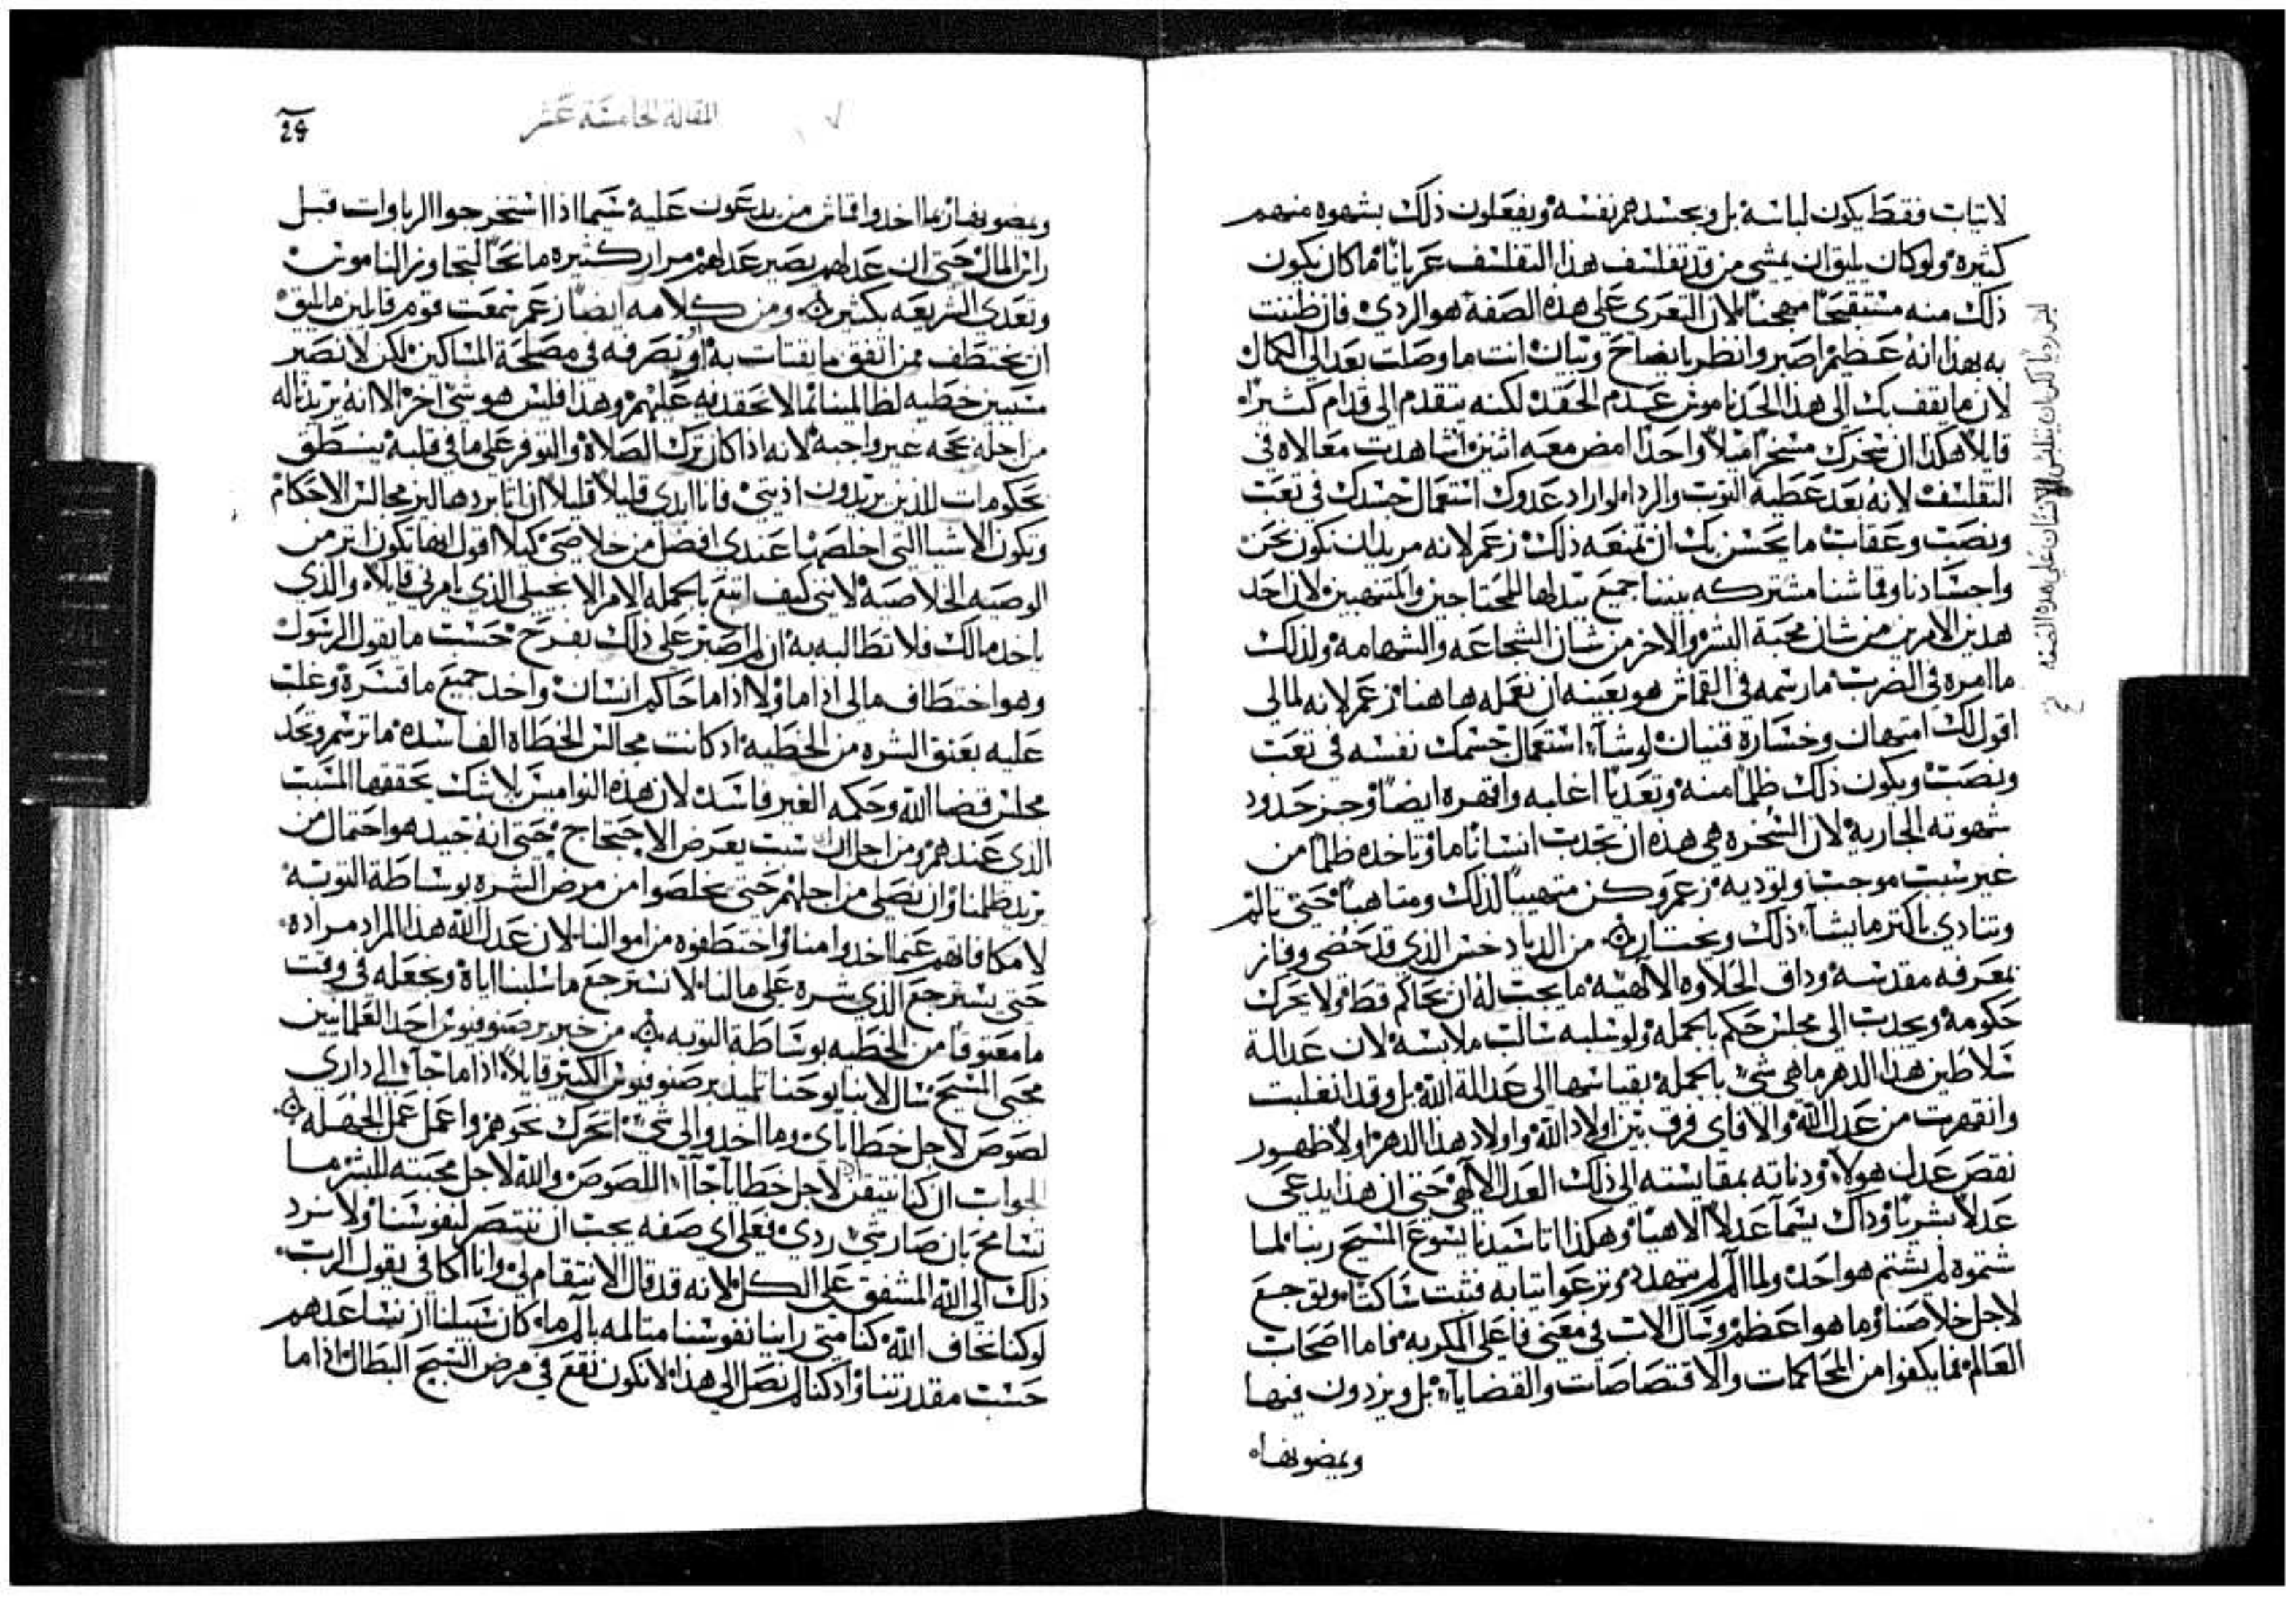 لاتيات فقط يكون لباسه بل وبجسدهم نفسه ويفعلون ذلك بشهوه منهم
كثيره ولو كان يليق ان يمشي من قد تفلسف هذا التفلسف عريانًا ما كان يكون
ذلك منه مستقبحًا مهجنًا لان التعري على هذه الصفة هو الردي فان ظننت
به بهذا انه عظيم اصبر وانظر بايضاح وبيان انت ما وصلت بعد الى الكمال
لان ما يقف بك الى هذا الحد ناموس عدم الحقد لكنه يتقدم الى قدام كثيرًا
قايلاً هكذا ان سخرك مسخر اميلاً واحدًا امض معه اثنين اشاهدت مغالاه في
التفلسف لانه بعد عطية التوب والردا لو اراد عدوك استعمال جسدك في تعب
ونصب وعقاب ما يحسن بك ان تمنعه ذلك زعم لانه مريد ان تكون نحن
واجسادنا وقماشنا مشتركه بيننا جميع نبدلها للمحتاجين والمتهبين لان احد
هذين الامرين من شان محبة البشر والاخر من شان الشجاعه والشهامه ولذلك
ما امره في الضرب ما رسمه في القماش هو بعينه ان نعمله ها هنا زعم لانه لما لي
اقول لك امتهان وخسارة قنيان لو شآء استعمال جسمك نفسه في تعب
ونصب ويكون ذلك ظلمًا منه وتعديًا اغلبه واقهره ايضًا وجز حدود
شهوته الجاريه لان السخره هي هذه ان تجدب انسانًا ما وتاخده ظلمًا من
غير سبب موجب وتوديه زعم وكن متهيبًا لذلك ومتاهبًا حتى تالم
وتنادي باكتر ما يشآء ذلك ويختار من الديادخس الذي قد حضي وفاز
بمعرفه مقدسه وداق الحلاوه الالهيه ما يجب له ان يحاكم قط ولا يحرك
حكومه ويجدب الى مجلس حكم بالجمله ولو سلبه سالب ملابسه لان عدالة
سلاطين هذا الدهر ما هي شي بالجمله بقياسها الى عدالة الله بل وقد انغلبت
وانقهرت من عدل الله والا فاي فرق بين اولاد الله واولاد هذا الدهر اولا ظهور
نقص عدل هولآ ودناته بمقايسته الى ذلك العدل الالهي حتى ان هذا يدعى
عدلاً بشريًا وذاك يسمآ عدلاً الاهيًا وهكذا انا سيدنا يسوع المسيح ربنا لما
شتموه لم يشتم هو احد ولما الم لم يتهدد ونزعوا تيابه فثبت ساكتًا وتوجع
لاجل خلاصنا وما هو اعظم وسال الاب في معنى فاعلي المكربه فاما اصحاب
العالم فما يكفوا من المحاكمات والاقتصاصات والقضايآ بل ويزدون فيها
ويمضو بها
على هذه الصفه
المقالة الخامسة عشر
29
من يدعون عليه سيما اذا استخرجوا الرباوات قبل
راس المال حتى ان عدلهم يصير عدلهم مرار كثيره ما نحًا لتجاوز الناموس
وتعدي الشريعه بكثير ومن كلامه ايضًا زعم سمعت قوم قايلين ما يليق
ان يختطف من اتفق ما نقتات به او نصرفه في مصلحة المساكين لكن لا نصير
مسببين خطيه لظالمينا مالا نحقد به عليهم وهذا فليس هو شي اخر الا انه يريد ماله
من اجله بحجه غير واجبه لانه اذا كان ترك الصلاة والتوفر على ما في قلبه ينسطق
بحكومات للذين يريدون اذيتي فانا ابدي قليلاً قليلاً ان اتا بردها لبن مجالس الاحكام
وتكون الاشيا التي اخلصها عندي افضل من خلاصي كيلا اقول انها تكون اثر من
الوصيه الخلاصيه لانني كيف اتبع بالجمله الامر الانجيلي الذي يامرني قايلاً والذي
ياخد مالك فلا تطالبه به ان لم اصبر على ذلك بفرح حسب ما يقول الرسول
وهو اختطاف مالي اذا ما ولا اذا ما حاكم انسان واخد جميع ما قسره وغلب
عليه يعتق الشره من الخطيه اد كانت مجالس الخطاه الفاسده ما ترسم وتحد
مجلس قضا الله وحكمه الغير فاسد لان هذه النواميس بلا شك يحققها المسبب
الذي عندهم ومن اجل اي سبب يعرض الاحتجاج حتى انه جيد هو احتمال من
يريد ظلمنا وان نصلي من اجلهم حتى يخلصوا من مرض الشره بوساطة التوبه
لا مكافاتهم عنما اخدوا منا واختطفوه من اموالنا لان عدل الله هذا المراد مراده
حتى يسترجع الذي شره على مالنا لا نسترجع ما سلبنا اياه ونجعله في وقت
ما معتوقًا من الخطيه بوساطة التوبه من خبر برصنوفيوس احد العلمانيين
محبي المسيح سال لانبا يوحنا تلميذ برصنوفيوس الكبير قايلاً اذا ما جآ الى داري
لصوص لاجل خطاياي وما اخدوا لي شيء اتحرك نحوهم واعمل عمل الجهله
الجواب ان كنا نتيقن لاجل خطايا جآ اللصوص والله لاجل محبته للبشر ما
تسامح بان صار شي ردي فعلى اي صفه يجب ان ننتصر لنفوسنا ولا نرد
ذلك الى الله المشفق على الكل لانه قد قال الانتقام لي وانا اكافي يقول الرب
لو كنا نخاف الله كنا متى راينا نفوسنا متالمه بالم ما كان سبيلنا ان نساعدهم
حسب مقدرتنا واد كنا لم نصل الى هذا لا نكون نقع في مرض السبح البطال اذا ما